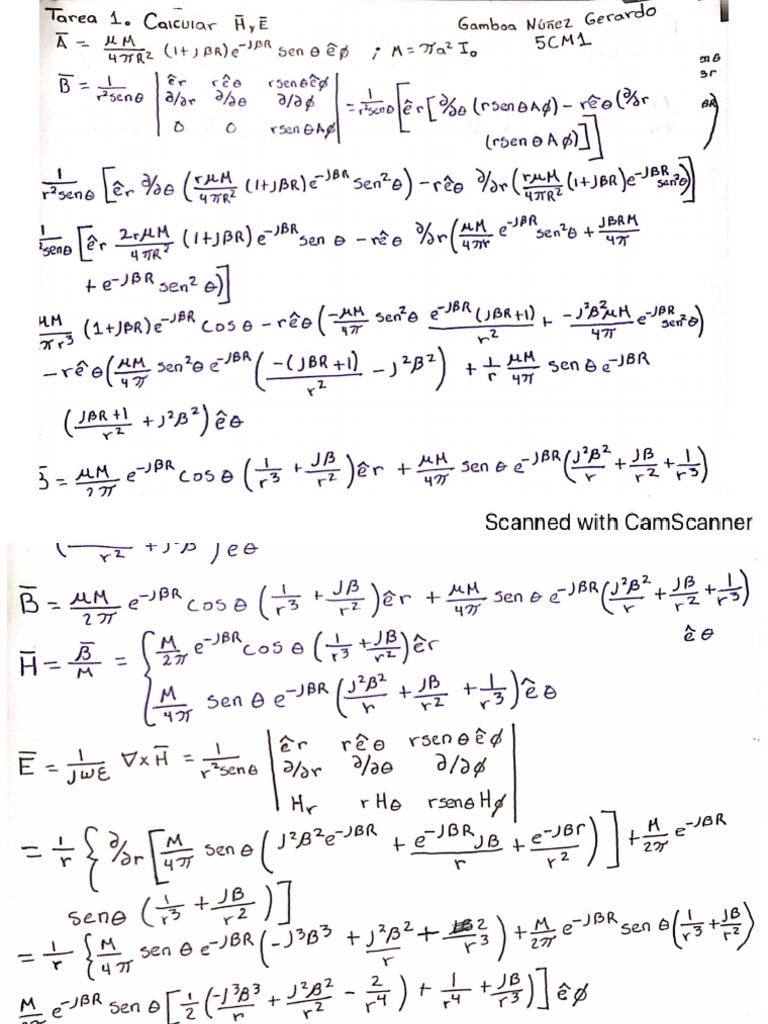 Tarea 1. Calcular H̄ y Ē
Gamboa Núñez Gerardo
5CM1
Ā = μM/4πR² (1+jβR)e^-jβR sen θ êφ ; M = πa² I₀
B̄ = 1/r²senθ | êr rêθ rsenθêφ |
| ∂/∂r ∂/∂θ ∂/∂φ | = 1/r²senθ [êr[∂/∂θ (rsenθAφ) − rêθ(∂/∂r
| 0 0 rsenθAφ | (rsenθAφ)]]
1/r²senθ [êr ∂/∂θ (rμM/4πR² (1+jβR)e^-jβR sen²θ) − rêθ ∂/∂r (rμM/4πR² (1+jβR)e^-jβR sen²θ)]
1/r²senθ [êr 2rμM/4πR² (1+jβR)e^-jβR sen θ − rêθ ∂/∂r(μM/4πr e^-jβR sen²θ + jβRM/4π
+ e^-jβR sen²θ)]
μM/πr³ (1+jβR)e^-jβR cosθ − rêθ(-μM/4π sen²θ e^-jβR(jβR+1)/r² + -j²β²μM/4π e^-jβR sen²θ)
− rêθ(μM/4π sen²θ e^-jβR(-(jβR+1)/r² − j²β²) + 1/r μM/4π senθ e^-jβR
(jβR+1/r² + j²β²) êθ
B̄ = μM/2π e^-jβR cosθ (1/r³ + jβ/r²)êr + μM/4π senθ e^-jβR(j²β²/r + jβ/r² + 1/r³)
Scanned with CamScanner
B̄ = μM/2π e^-jβR cosθ (1/r³ + jβ/r²)êr + μM/4π sen θ e^-jβR(j²β²/r + jβ/r² + 1/r³)
êθ
H̄ = B̄/M = { M/2π e^-jβR cosθ (1/r³ + jβ/r²)êr
M/4π senθ e^-jβR (j²β²/r + jβ/r² + 1/r³)êθ
Ē = 1/jωε ∇×H̄ = 1/r²senθ | êr rêθ rsenθêφ |
| ∂/∂r ∂/∂θ ∂/∂φ |
| Hr rHθ rsenθHφ |
= 1/r { ∂/∂r [M/4π senθ (j²β²e^-jβR + e^-jβR jβ/r + e^-jβr/r²)] + M/2π e^-jβR
senθ (1/r³ + jβ/r²)]
= 1/r { M/4π senθ e^-jβR(-j³β³ + j²β²/r + 2/r³) + M/2π e^-jβR senθ(1/r³ + jβ/r²)
M/2π e^-jβR senθ [1/2(-j³β³/r + j²β²/r² − 2/r⁴) + 1/r⁴ + jβ/r³)] êφ